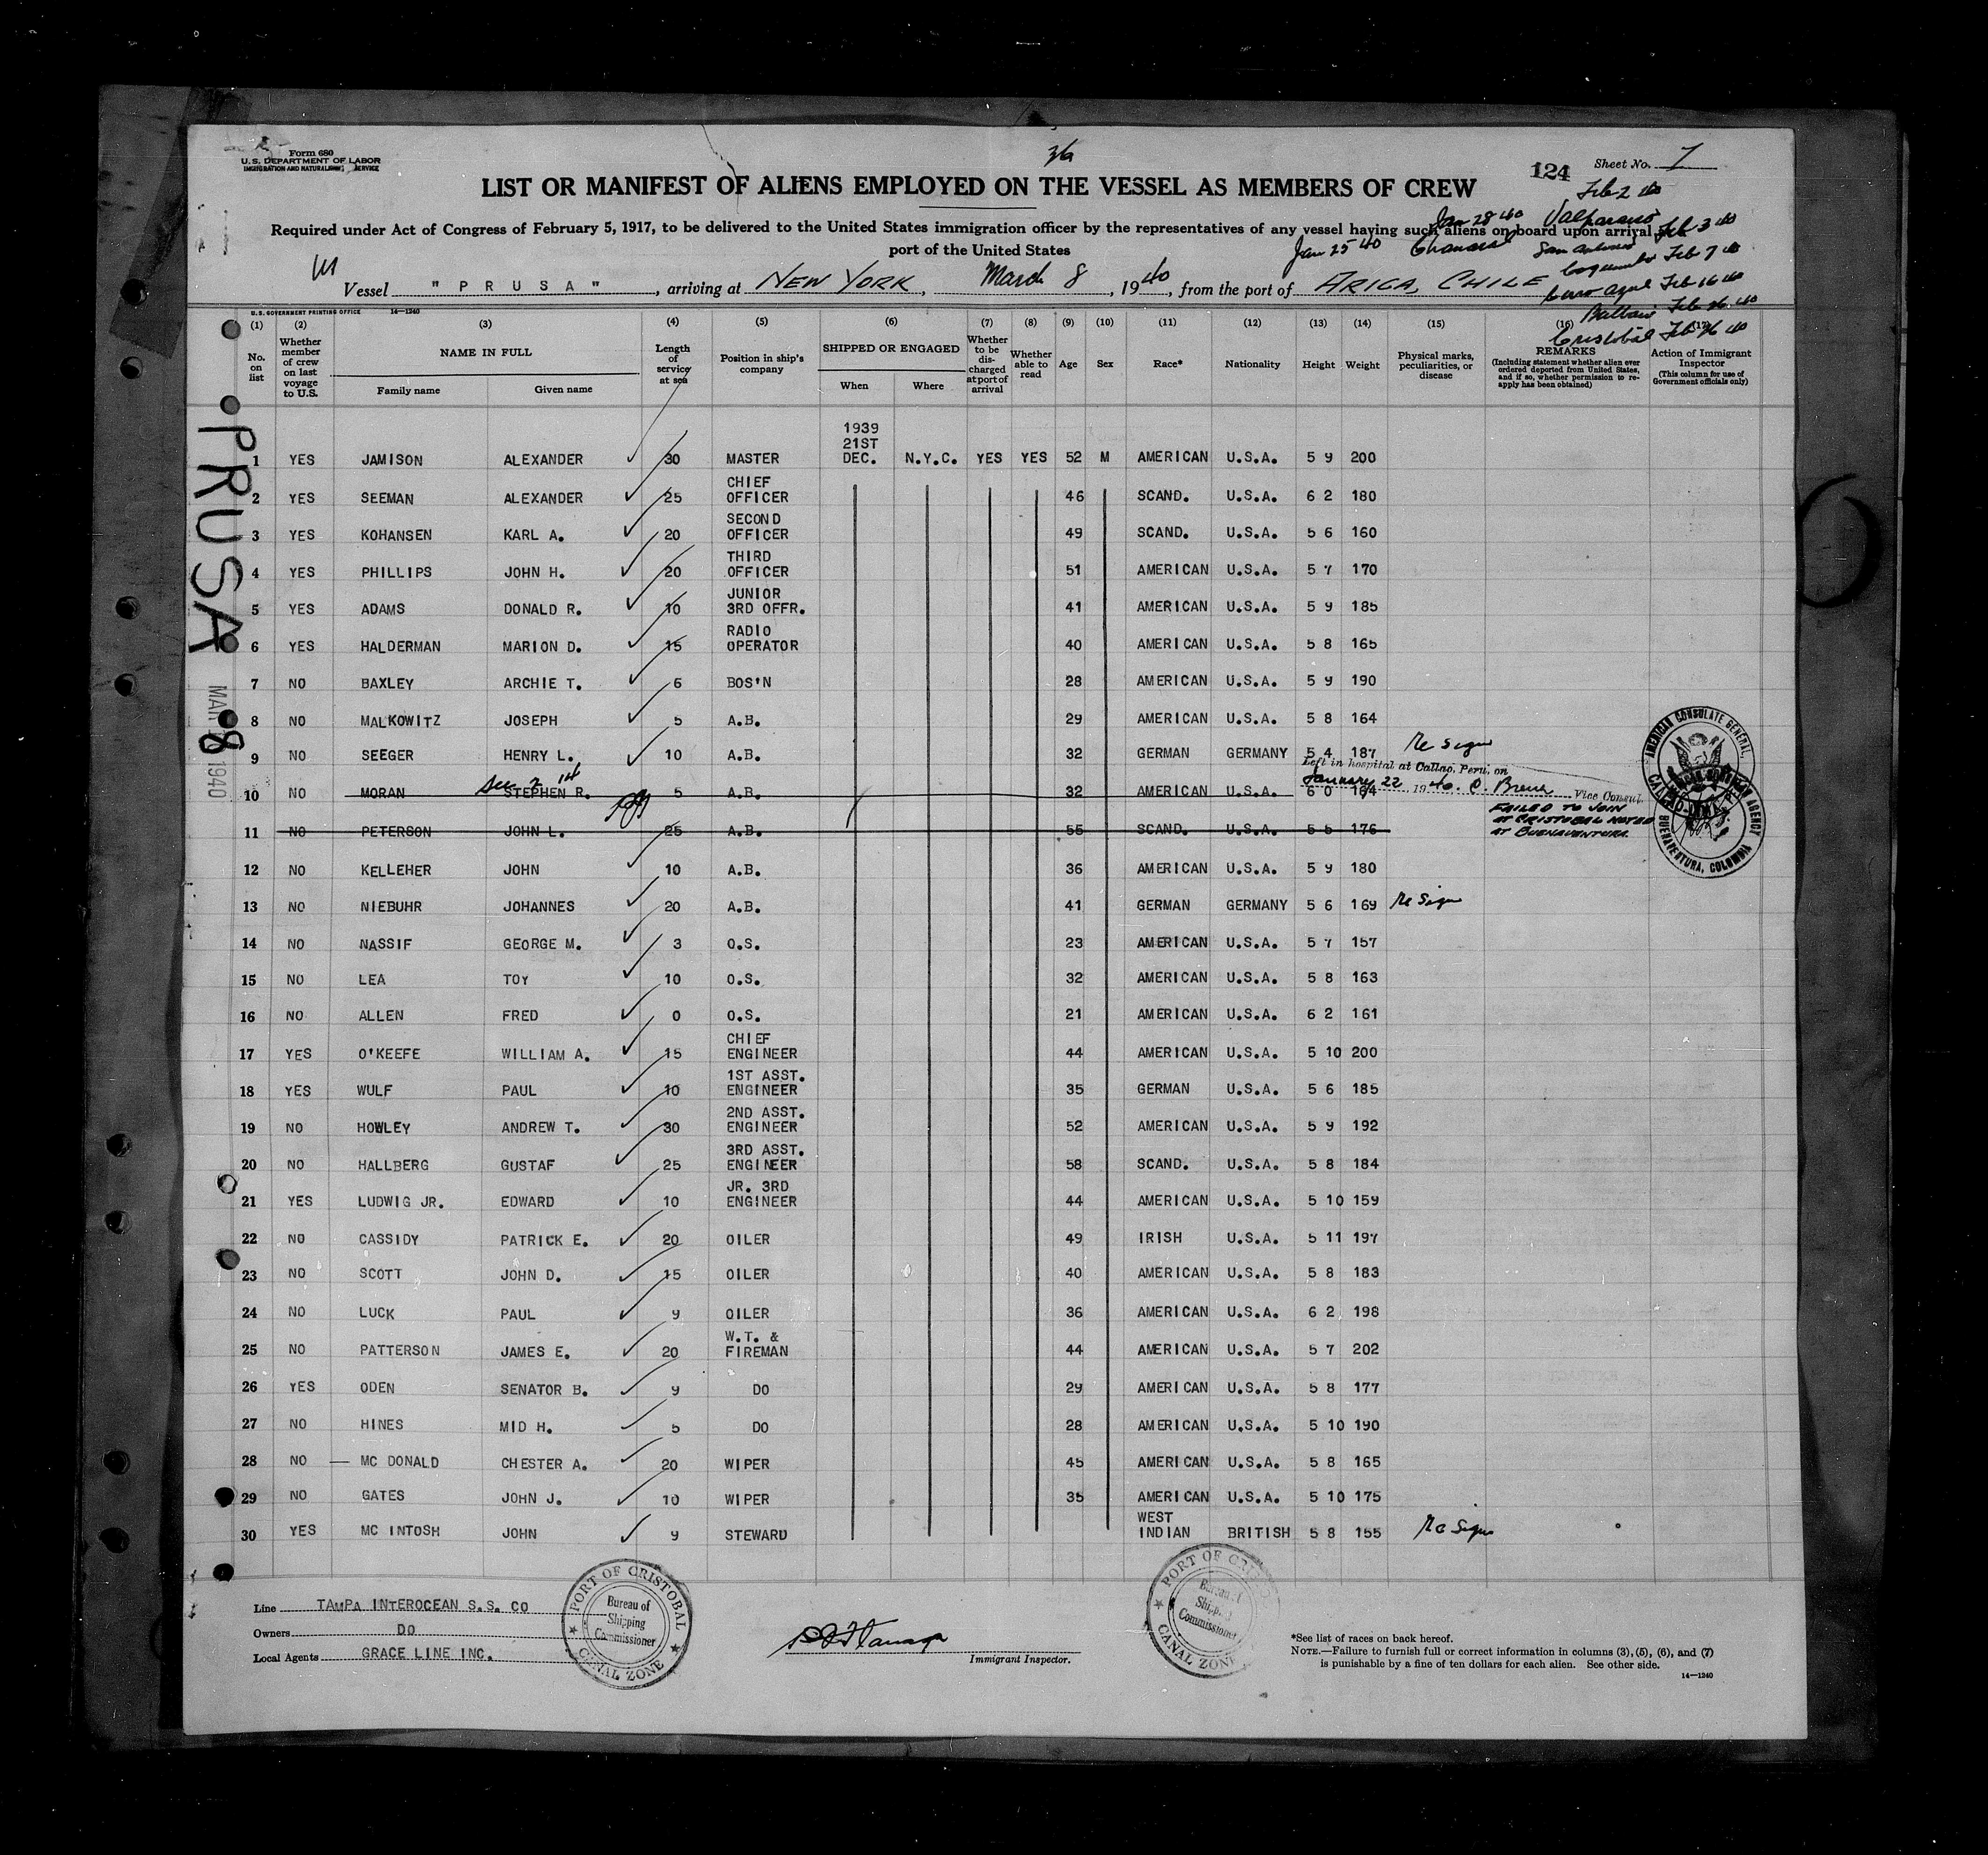 Form 680
U.S. DEPARTMENT OF LABOR
IMMIGRATION AND NATURALIZATION SERVICE
36
124
Sheet No. 7
LIST OR MANIFEST OF ALIENS EMPLOYED ON THE VESSEL AS MEMBERS OF CREW
Feb 2 40
Required under Act of Congress of February 5, 1917, to be delivered to the United States immigration officer by the representatives of any vessel having such aliens on board upon arrival
port of the United States
Jan 28 40 Valparaiso Feb 3 40
Jan 25 40 Chanaral San Antonio
Coquimbo Feb 7 40
Vessel "PRUSA", arriving at NEW YORK, March 8, 1940, from the port of ARICA, CHILE
Feb 16 40
Balboa Feb 26 40
Cristobal Feb 26 40
U.S. GOVERNMENT PRINTING OFFICE 14—1240
(1) (2) (3) (4) (5) (6) (7) (8) (9) (10) (11) (12) (13) (14) (15) (16) (17)
No. on list
Whether member of crew on last voyage to U.S.
NAME IN FULL
Family name Given name
Length of service at sea
Position in ship's company
SHIPPED OR ENGAGED
When Where
Whether to be discharged at port of arrival
Whether able to read
Age
Sex
Race*
Nationality
Height
Weight
Physical marks, peculiarities, or disease
REMARKS
(Including statement whether alien ever ordered deported from United States, and if so, whether permission to re-apply has been obtained)
Action of Immigrant Inspector
(This column for use of Government officials only)
1 YES JAMISON ALEXANDER 30 MASTER 1939 21ST DEC. N.Y.C. YES YES 52 M AMERICAN U.S.A. 5 9 200
2 YES SEEMAN ALEXANDER 25 CHIEF OFFICER 46 SCAND. U.S.A. 6 2 180
3 YES KOHANSEN KARL A. 20 SECOND OFFICER 49 SCAND. U.S.A. 5 6 160
4 YES PHILLIPS JOHN H. 20 THIRD OFFICER 51 AMERICAN U.S.A. 5 7 170
5 YES ADAMS DONALD R. 10 JUNIOR 3RD OFFR. 41 AMERICAN U.S.A. 5 9 185
6 YES HALDERMAN MARION D. 15 RADIO OPERATOR 40 AMERICAN U.S.A. 5 8 165
7 NO BAXLEY ARCHIE T. 6 BOS'N 28 AMERICAN U.S.A. 5 9 190
8 NO MALKOWITZ JOSEPH 5 A.B. 29 AMERICAN U.S.A. 5 8 164
9 NO SEEGER HENRY L. 10 A.B. 32 GERMAN GERMANY 5 4 187
Left in hospital at Callao, Peru, on
January 22 1940. Vice Consul.
10 NO MORAN STEPHEN R. 5 A.B. 32 AMERICAN U.S.A. 6 0 164
FAILED TO JOIN
AT CRISTOBAL NOTED
AT BUENAVENTURA
11 NO PETERSON JOHN L. 25 A.B. 55 SCAND. U.S.A. 5 5 176
12 NO KELLEHER JOHN 10 A.B. 36 AMERICAN U.S.A. 5 9 180
13 NO NIEBUHR JOHANNES 20 A.B. 41 GERMAN GERMANY 5 6 169
14 NO NASSIF GEORGE M. 3 O.S. 23 AMERICAN U.S.A. 5 7 157
15 NO LEA TOY 10 O.S. 32 AMERICAN U.S.A. 5 8 163
16 NO ALLEN FRED 0 O.S. 21 AMERICAN U.S.A. 6 2 161
17 YES O'KEEFE WILLIAM A. 15 CHIEF ENGINEER 44 AMERICAN U.S.A. 5 10 200
18 YES WULF PAUL 10 1ST ASST. ENGINEER 35 GERMAN U.S.A. 5 6 185
19 NO HOWLEY ANDREW T. 30 2ND ASST. ENGINEER 52 AMERICAN U.S.A. 5 9 192
20 NO HALLBERG GUSTAF 25 3RD ASST. ENGINEER 58 SCAND. U.S.A. 5 8 184
21 YES LUDWIG JR. EDWARD 10 JR. 3RD ENGINEER 44 AMERICAN U.S.A. 5 10 159
22 NO CASSIDY PATRICK E. 20 OILER 49 IRISH U.S.A. 5 11 197
23 NO SCOTT JOHN D. 15 OILER 40 AMERICAN U.S.A. 5 8 183
24 NO LUCK PAUL 9 OILER 36 AMERICAN U.S.A. 6 2 198
25 NO PATTERSON JAMES E. 20 W.T. & FIREMAN 44 AMERICAN U.S.A. 5 7 202
26 YES ODEN SENATOR B. 9 DO 29 AMERICAN U.S.A. 5 8 177
27 NO HINES MID H. 5 DO 28 AMERICAN U.S.A. 5 10 190
28 NO MC DONALD CHESTER A. 20 WIPER 45 AMERICAN U.S.A. 5 8 165
29 NO GATES JOHN J. 10 WIPER 35 AMERICAN U.S.A. 5 10 175
30 YES MC INTOSH JOHN 9 STEWARD WEST INDIAN BRITISH 5 8 155
PRUSA
MAR 8 1940
AMERICAN CONSULATE GENERAL,
BUENAVENTURA, COLOMBIA
Line TAMPA INTEROCEAN S.S. CO
Owners DO
Local Agents GRACE LINE INC.
PORT OF CRISTOBAL
Bureau of
Shipping
Commissioner
CANAL ZONE
Immigrant Inspector.
PORT OF
Shipping
Commissioner
CANAL ZONE
*See list of races on back hereof.
NOTE.—Failure to furnish full or correct information in columns (3), (5), (6), and (7)
is punishable by a fine of ten dollars for each alien. See other side.
14—1240